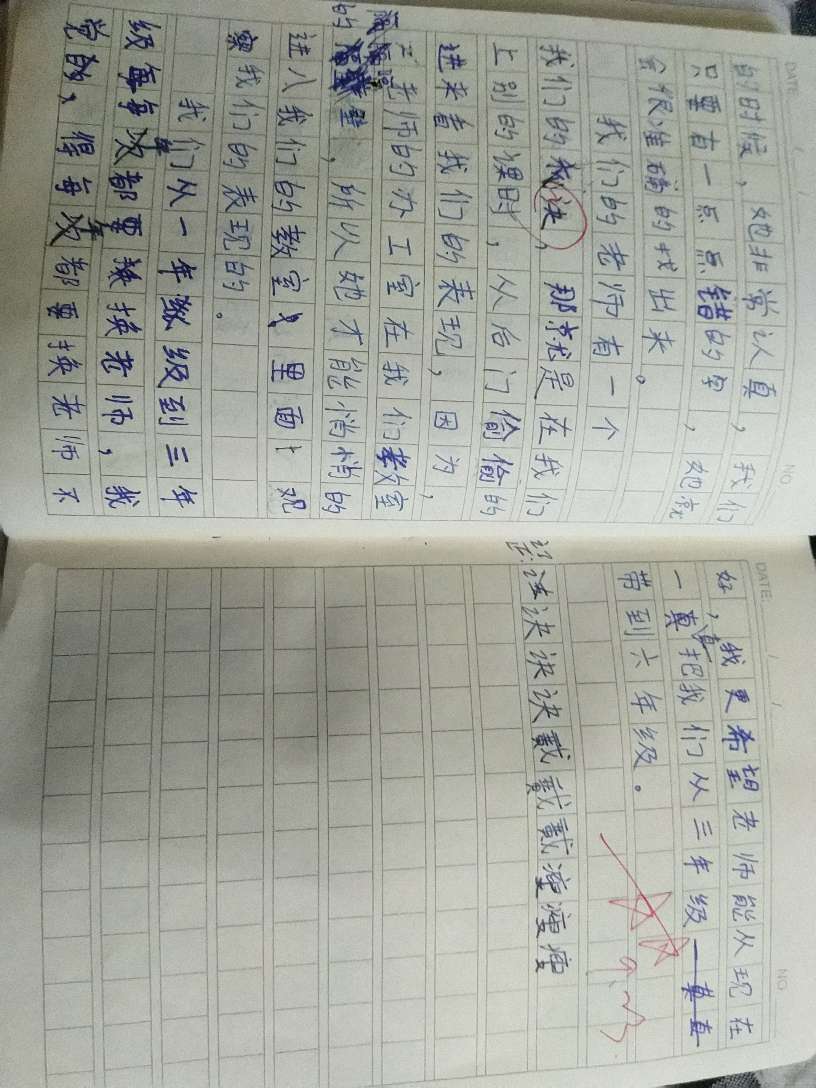 DATE
NO
的时候，她非常认真，我们
只要有一点点错的字，她就
会很准确的找出来。
我们的老师有一个
我们的诀，那就是在我们
上别的课时，从后门偷偷的
进来看我们的表现，因为，
老师的办工室在我们教室
的里，所以她才能悄悄的
进入我们的教室里面观
察我们的表现的。
我们从一年级到三年
级每年都要换老师，我
觉的，得每年都要换老师不
DATE:
NO
好，我更希望老师能从现在
一真把我们从三年级
带到六年级。
诀诀诀诀戴戴戴瘦瘦瘦